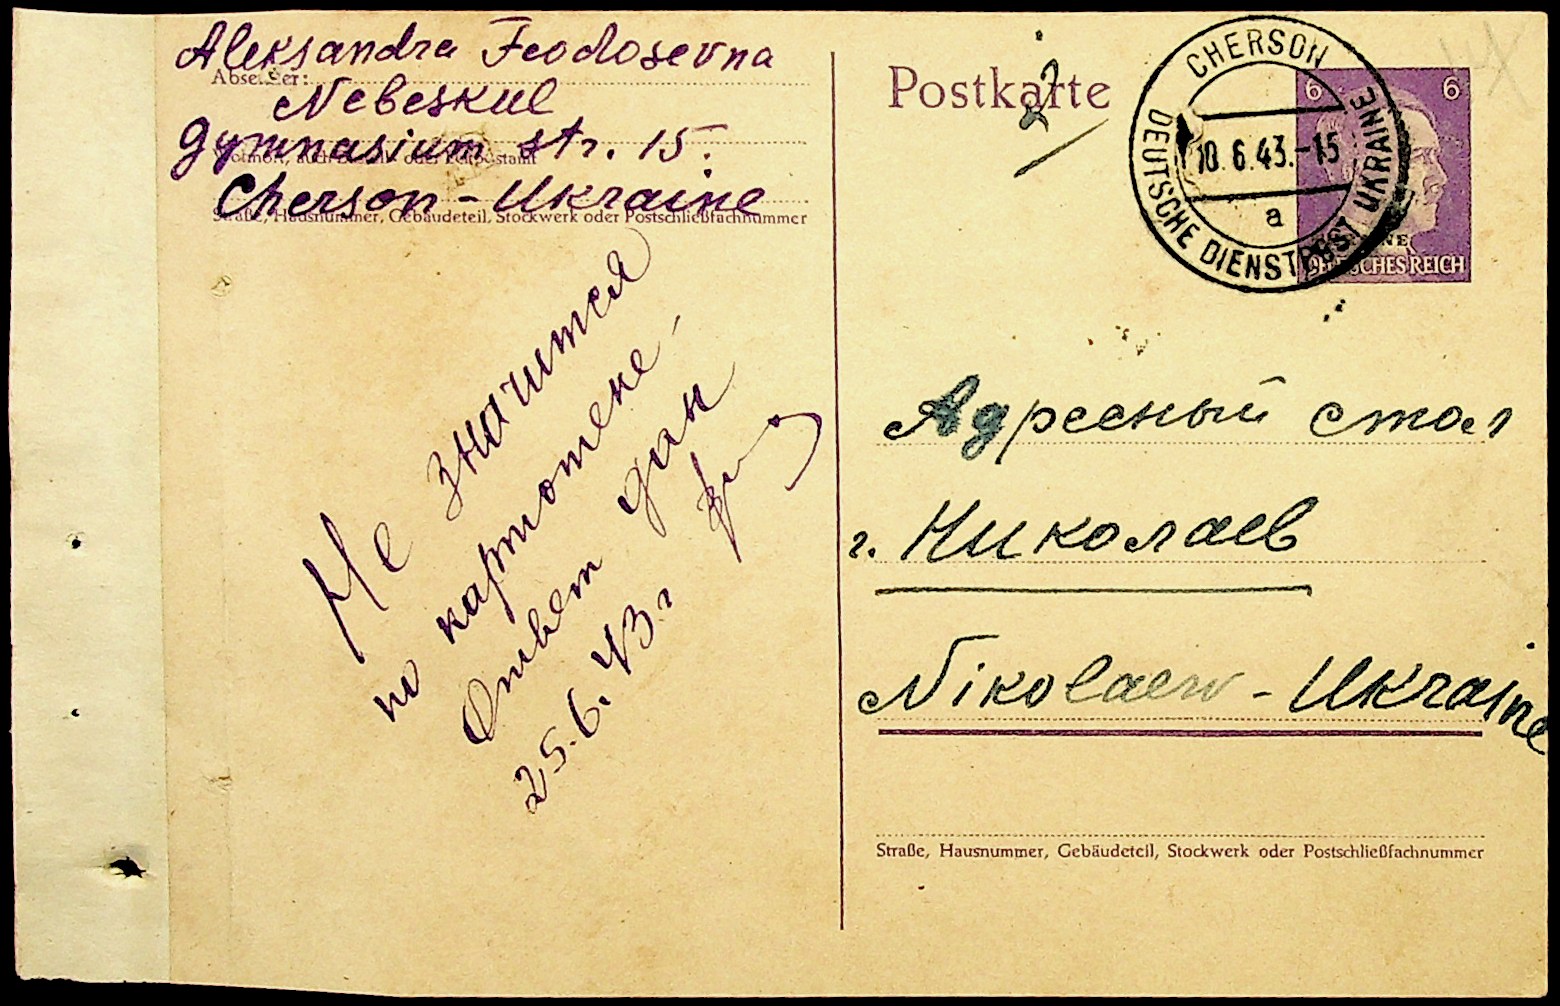 Aleksandra Feodosevna
Absender:
Nebeskul
Gymnasium str. 15.
Cherson - Ukraine
Straße, Hausnummer, Gebäudeteil, Stockwerk oder Postschließfachnummer
Не значится
по картотеке -
Ответ дан
25.6.43 г
Postkarte
2
CHERSON
10.6.43.-15
a
DEUTSCHE DIENSTPOST UKRAINE
6 6
DEUTSCHES REICH
Адресный стол
г. Николаев
Nikolaew - Ukraine
Straße, Hausnummer, Gebäudeteil, Stockwerk oder Postschließfachnummer